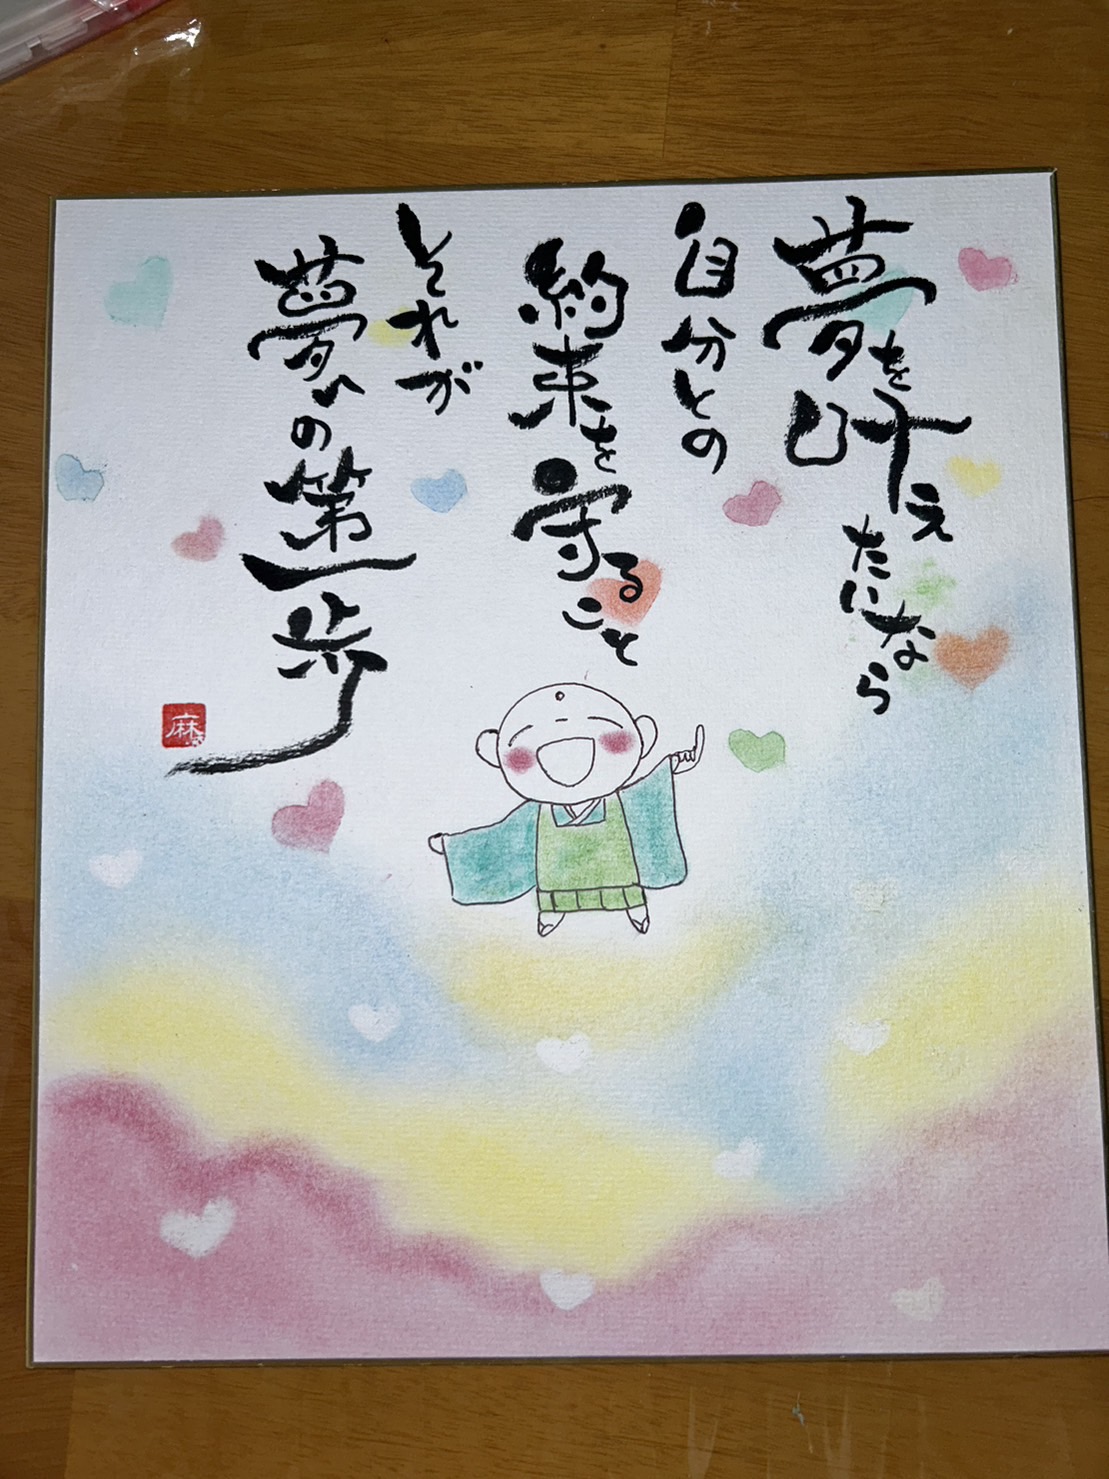 夢を叶えたいなら
自分との
約束を守ること
それが
夢への第一歩
麻